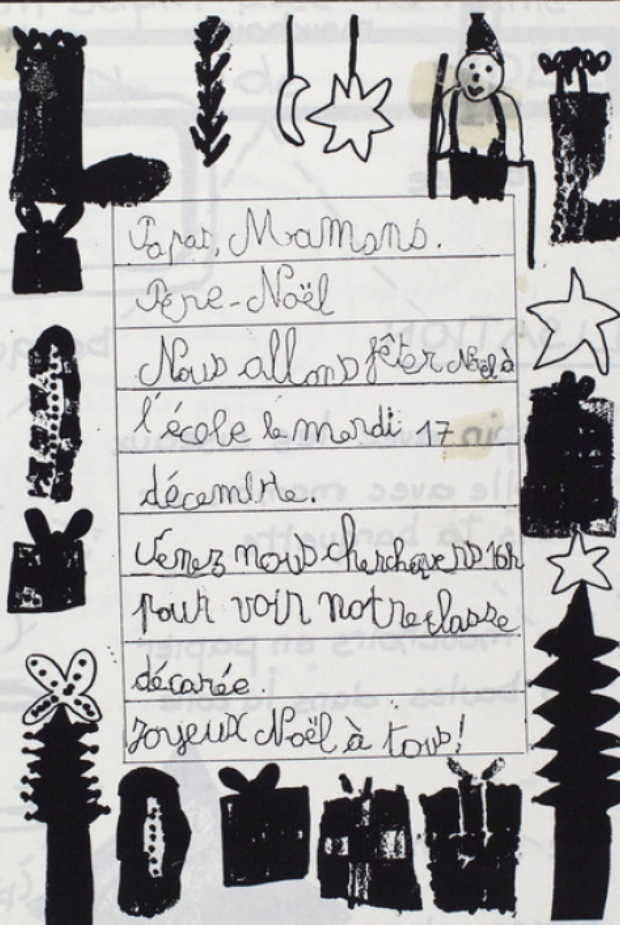 Papas, Mamans.
Père-Noël
Nous allons fêter Noël à
l'école le mardi 17
décembre.
Venez nous chercher vers 16h
pour voir notre classe
décorée.
Joyeux Noël à tous!